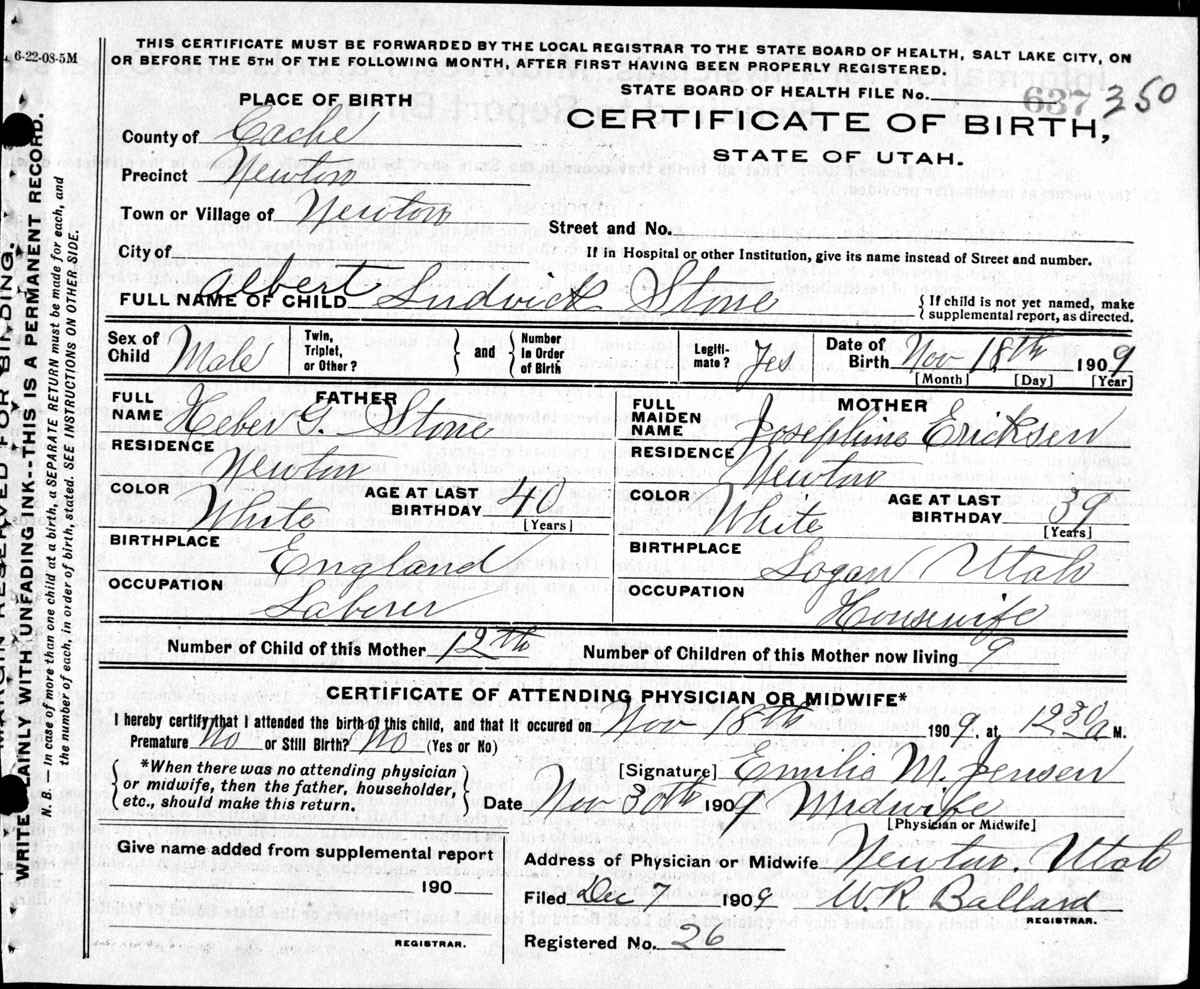 6-22-08-5M
THIS CERTIFICATE MUST BE FORWARDED BY THE LOCAL REGISTRAR TO THE STATE BOARD OF HEALTH, SALT LAKE CITY, ON
OR BEFORE THE 5TH OF THE FOLLOWING MONTH, AFTER FIRST HAVING BEEN PROPERLY REGISTERED.
STATE BOARD OF HEALTH FILE No. 637 350
PLACE OF BIRTH
CERTIFICATE OF BIRTH,
STATE OF UTAH.
County of Cache
Precinct Newton
Town or Village of Newton
Street and No.
City of
If in Hospital or other Institution, give its name instead of Street and number.
FULL NAME OF CHILD Albert Ludvick Stone
{ If child is not yet named, make
supplemental report, as directed.
Sex of Child Male
Twin, Triplet, or Other? } and { Number in Order of Birth
Legiti-mate? Yes
Date of Birth Nov 18th 1909
[Month] [Day] [Year]
FATHER
FULL NAME Heber G. Stone
RESIDENCE Newton
COLOR White
AGE AT LAST BIRTHDAY 40
[Years]
BIRTHPLACE England
OCCUPATION Laborer
MOTHER
FULL MAIDEN NAME Josephine Ericksen
RESIDENCE Newton
COLOR White
AGE AT LAST BIRTHDAY 39
[Years]
BIRTHPLACE Logan Utah
OCCUPATION Housewife
Number of Child of this Mother 12th
Number of Children of this Mother now living 9
CERTIFICATE OF ATTENDING PHYSICIAN OR MIDWIFE*
I hereby certify that I attended the birth of this child, and that it occured on Nov 18th 1909, at 1230a M.
Premature No or Still Birth? No (Yes or No)
{ *When there was no attending physician
or midwife, then the father, householder,
etc., should make this return. }
[Signature] Emilie M. Jensen
Date Nov 30th 1909 Midwife
[Physician or Midwife]
Give name added from supplemental report
190
REGISTRAR.
Address of Physician or Midwife Newton, Utah
Filed Dec 7 1909 W R Ballard
REGISTRAR.
Registered No. 26
MARGIN RESERVED FOR BINDING.
WRITE PLAINLY WITH UNFADING INK--THIS IS A PERMANENT RECORD.
N. B. — In case of more than one child at a birth, a SEPARATE RETURN must be made for each, and
the number of each, in order of birth, stated. SEE INSTRUCTIONS ON OTHER SIDE.